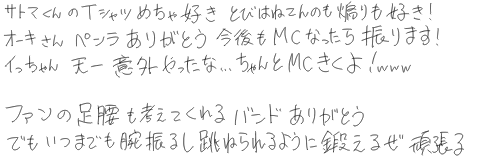 サトマくんのTシャツめちゃ好き とびはねてんのも煽りも好き!
オーキさん ペンラ ありがとう 今後もMCなったら振ります!
イっちゃん 天一 意外やったな…ちゃんとMCきくよ!www
ファンの足腰も考えてくれる バンド ありがとう
でもいつまでも腕振るし跳ねられるように鍛えるぜ 頑張る